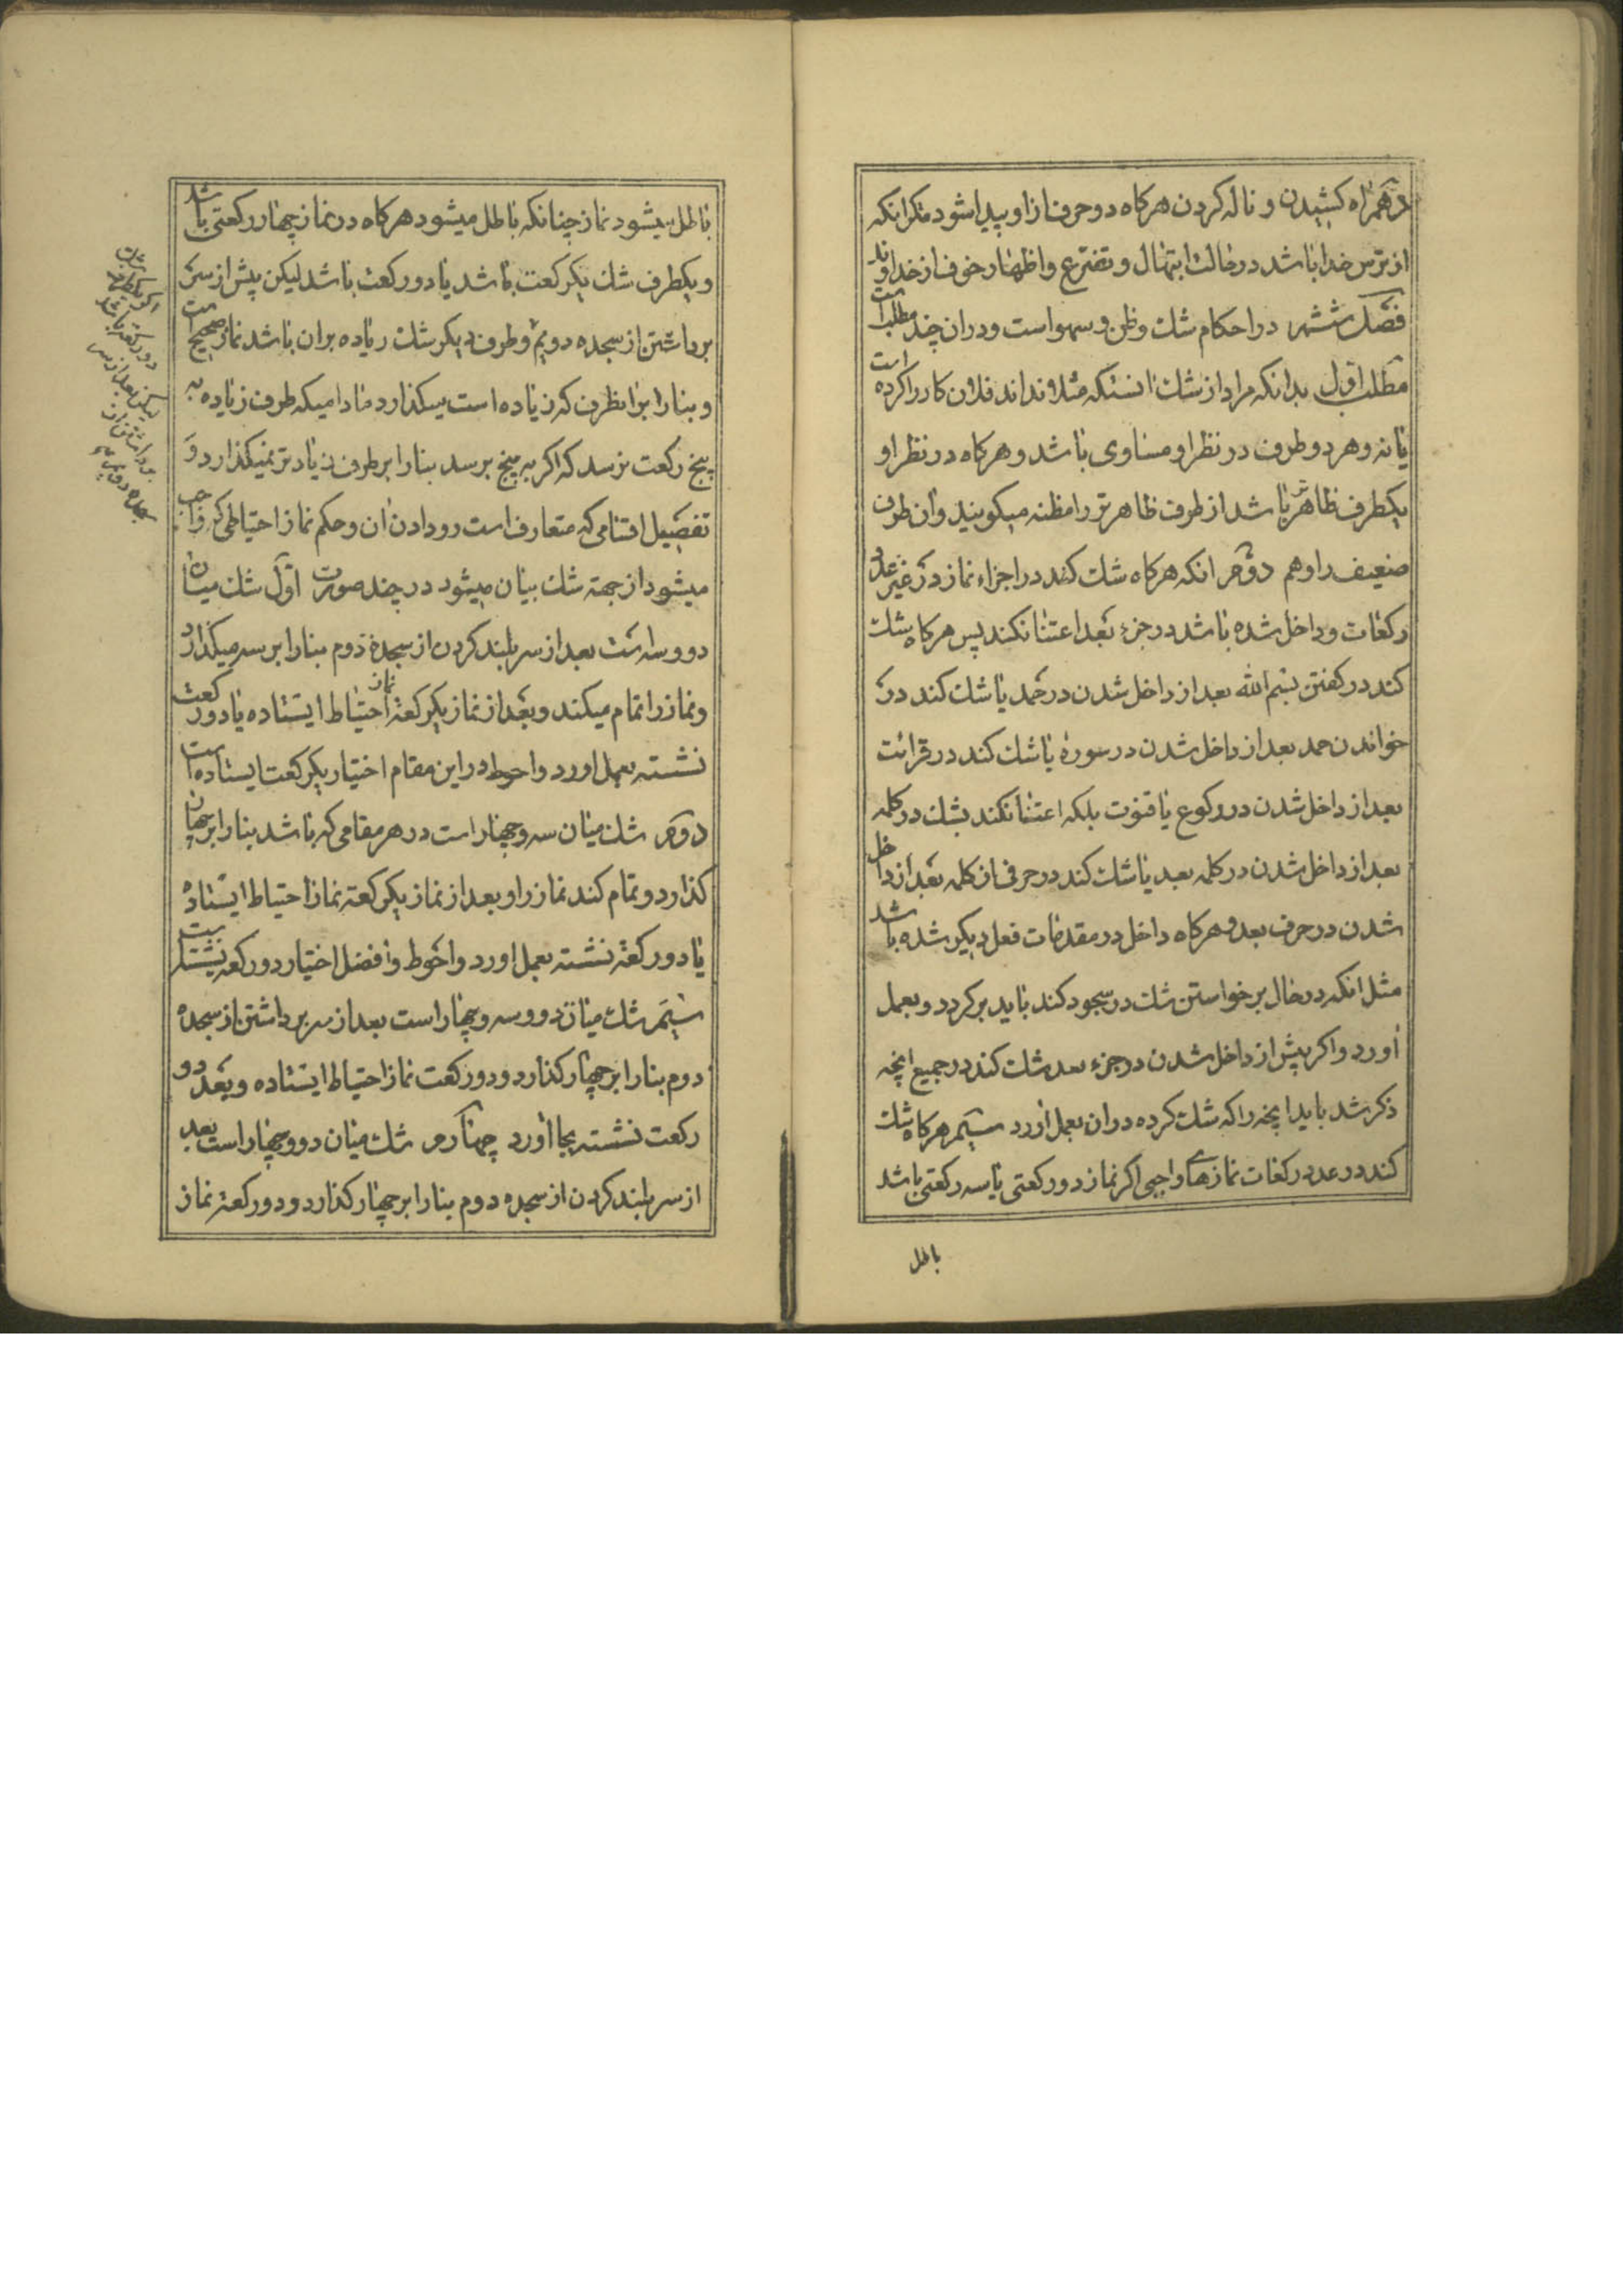 دهم راه کشیدن و ناله کردن هرکاه دو حرف از او پیدا شود مکر انکه
از ترس خدا باشد در حالت ابتهال و تضرع و اظهار خوف از خداوند
فصل ششم در احکام شک و ظن و سهو است و دران چند مطلب است
مطلب اول بدانکه مراد از شک انستکه مثلا نداند فلان کار را کرده است
یا نه و هر دو طرف در نظر او مساوی باشد و هرکاه در نظر او
یکطرف ظاهرتر باشد از طرف ظاهرتر را مظنه میکویند و ان طرف
ضعیف را وهم دوم انکه هرکاه شک کند در اجزاء نماز در غیر عدد
رکعات و داخل شده باشد در جزء بعد اعتنا نکند پس هرکاه شک
کند در کفتن بسم الله بعد از داخل شدن در حمد یا شک کند در
خواندن حمد بعد از داخل شدن در سوره یا شک کند در قرائت
بعد از داخل شدن در رکوع یا قنوت بلکه اعتنا نکند بشک در کلمه
بعد از داخل شدن در کلمه بعد یا شک کند در حرفی از کلمه بعد از داخل
شدن در حرف بعد و هرکاه داخل در مقدمات فعل دیکر شده باشد
مثل انکه در حال برخواستن شک در سجود کند باید برکردد و بعمل
اورد و اکر پیش از داخل شدن در جزء بعد شک کند در جمیع انچه
ذکر شد باید انچه را که شک کرده دران بعمل اورد سیم هرکاه شک
کند در عدد رکعات نمازهای واجبی اکر نماز دو رکعتی یا سه رکعتی باشد
باطل
باطل میشود نماز چنانکه باطل میشود هرکاه در نماز چهار رکعتی باشد
و یکطرف شک یکرکعت باشد یا دو رکعت باشد لیکن پیش از سر
برداشتن از سجده دویم و طرف دیکر شک زیاده بران باشد نماز صحیح است
و بنا را بر انطرف که زیاده است میکذارد مادامیکه طرف زیاده به
پنج رکعت نرسد که اکر به پنج برسد بنا را بر طرف زیادتر نمیکذارد و
تفصیل اقسامی که متعارف است رو دادن ان و حکم نماز احتیاطی که واجب
میشود از جهة شک بیان میشود در چند صورت اول شک میان
دو و سه است بعد از سر بلند کردن از سجده دوم بنا را بر سه میکذارد
و نماز را تمام میکند و بعد از نماز یکرکعة نماز احتیاط ایستاده یا دو رکعت
نشسته بعمل اورد و احوط در این مقام اختیار یکرکعت ایستاده است
دوم شک میان سه و چهار است در هر مقامی که باشد بنا را بر چهار
کذارد و تمام کند نماز را و بعد از نماز یکرکعة نماز احتیاط ایستاده
یا دو رکعة نشسته بعمل اورد و احوط و افضل اختیار دو رکعة نشسته است
سیم شک میان دو و سه و چهار است بعد از سر برداشتن از سجده
دوم بنا را بر چهار کذارد و دو رکعت نماز احتیاط ایستاده و بعد دو
رکعت نشسته بجا اورد چهارم شک میان دو و چهار است بعد
از سر بلند کردن از سجده دوم بنا را بر چهار کذارد و دو رکعة نماز
شک
اکر یکطرف
دو رکعة باشد
لیکن بعد از سر
برداشتن از
سجده دویم